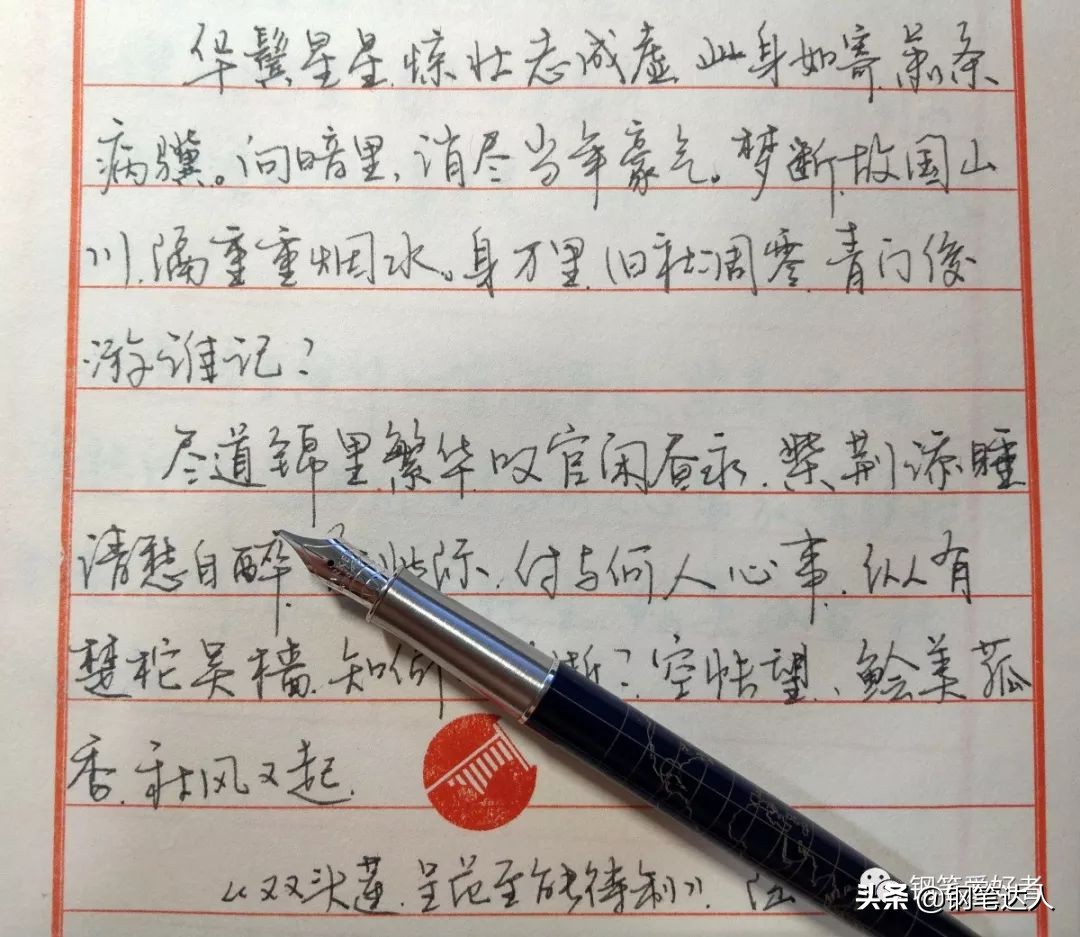 华鬓星星.惊壮志成虚.此身如寄.萧条
病骥。问暗里、消尽当年豪气。梦断.故国山
川.隔重重烟水。身万里.旧社凋零.青门俊
游谁记？
尽道锦里繁华.叹官闲昼永.柴荆添睡
清愁自醉.此际.付与何人心事.纵有
楚柁吴樯.知何逝？空怅望、鲙美菰
香.秋风又起.
《双头莲.呈范至能待制》江
钢笔爱好者
头条 @钢笔达人